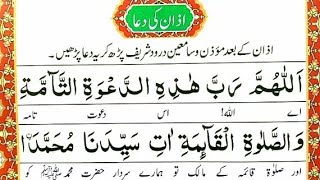 اذان کی دعا
اذان کے بعد مؤذن و سامعین درود شریف پڑھ کر یہ دعا پڑھیں۔
اَللّٰهُمَّ رَبَّ هٰذِهِ الدَّعْوَةِ التَّآمَّةِ
اے اللہ! اس دعوت تامہ
وَالصَّلٰوةِ الْقَآئِمَةِ اٰتِ سَيِّدَنَا مُحَمَّدَاۨ
اور صلوٰۃ قائمہ کے مالک تو ہمارے سردار حضرت محمد ﷺ کو